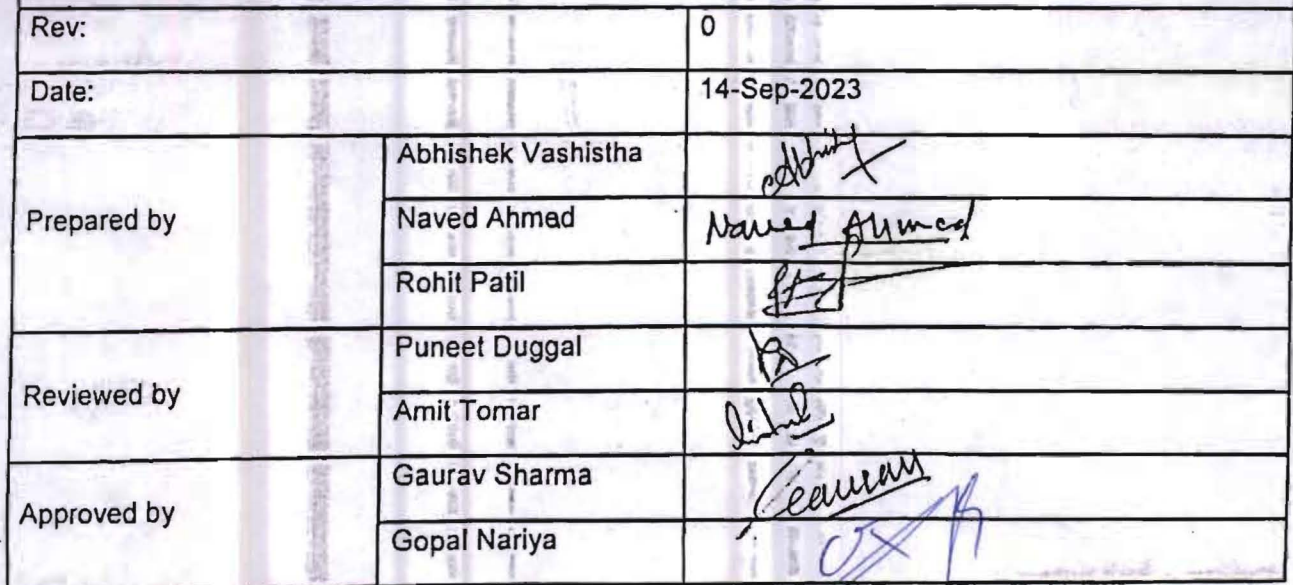 Rev: 0
Date: 14-Sep-2023
Prepared by
Abhishek Vashistha
Naved Ahmed Naved Ahmed
Rohit Patil
Reviewed by
Puneet Duggal
Amit Tomar
Approved by
Gaurav Sharma Gaurav
Gopal Nariya